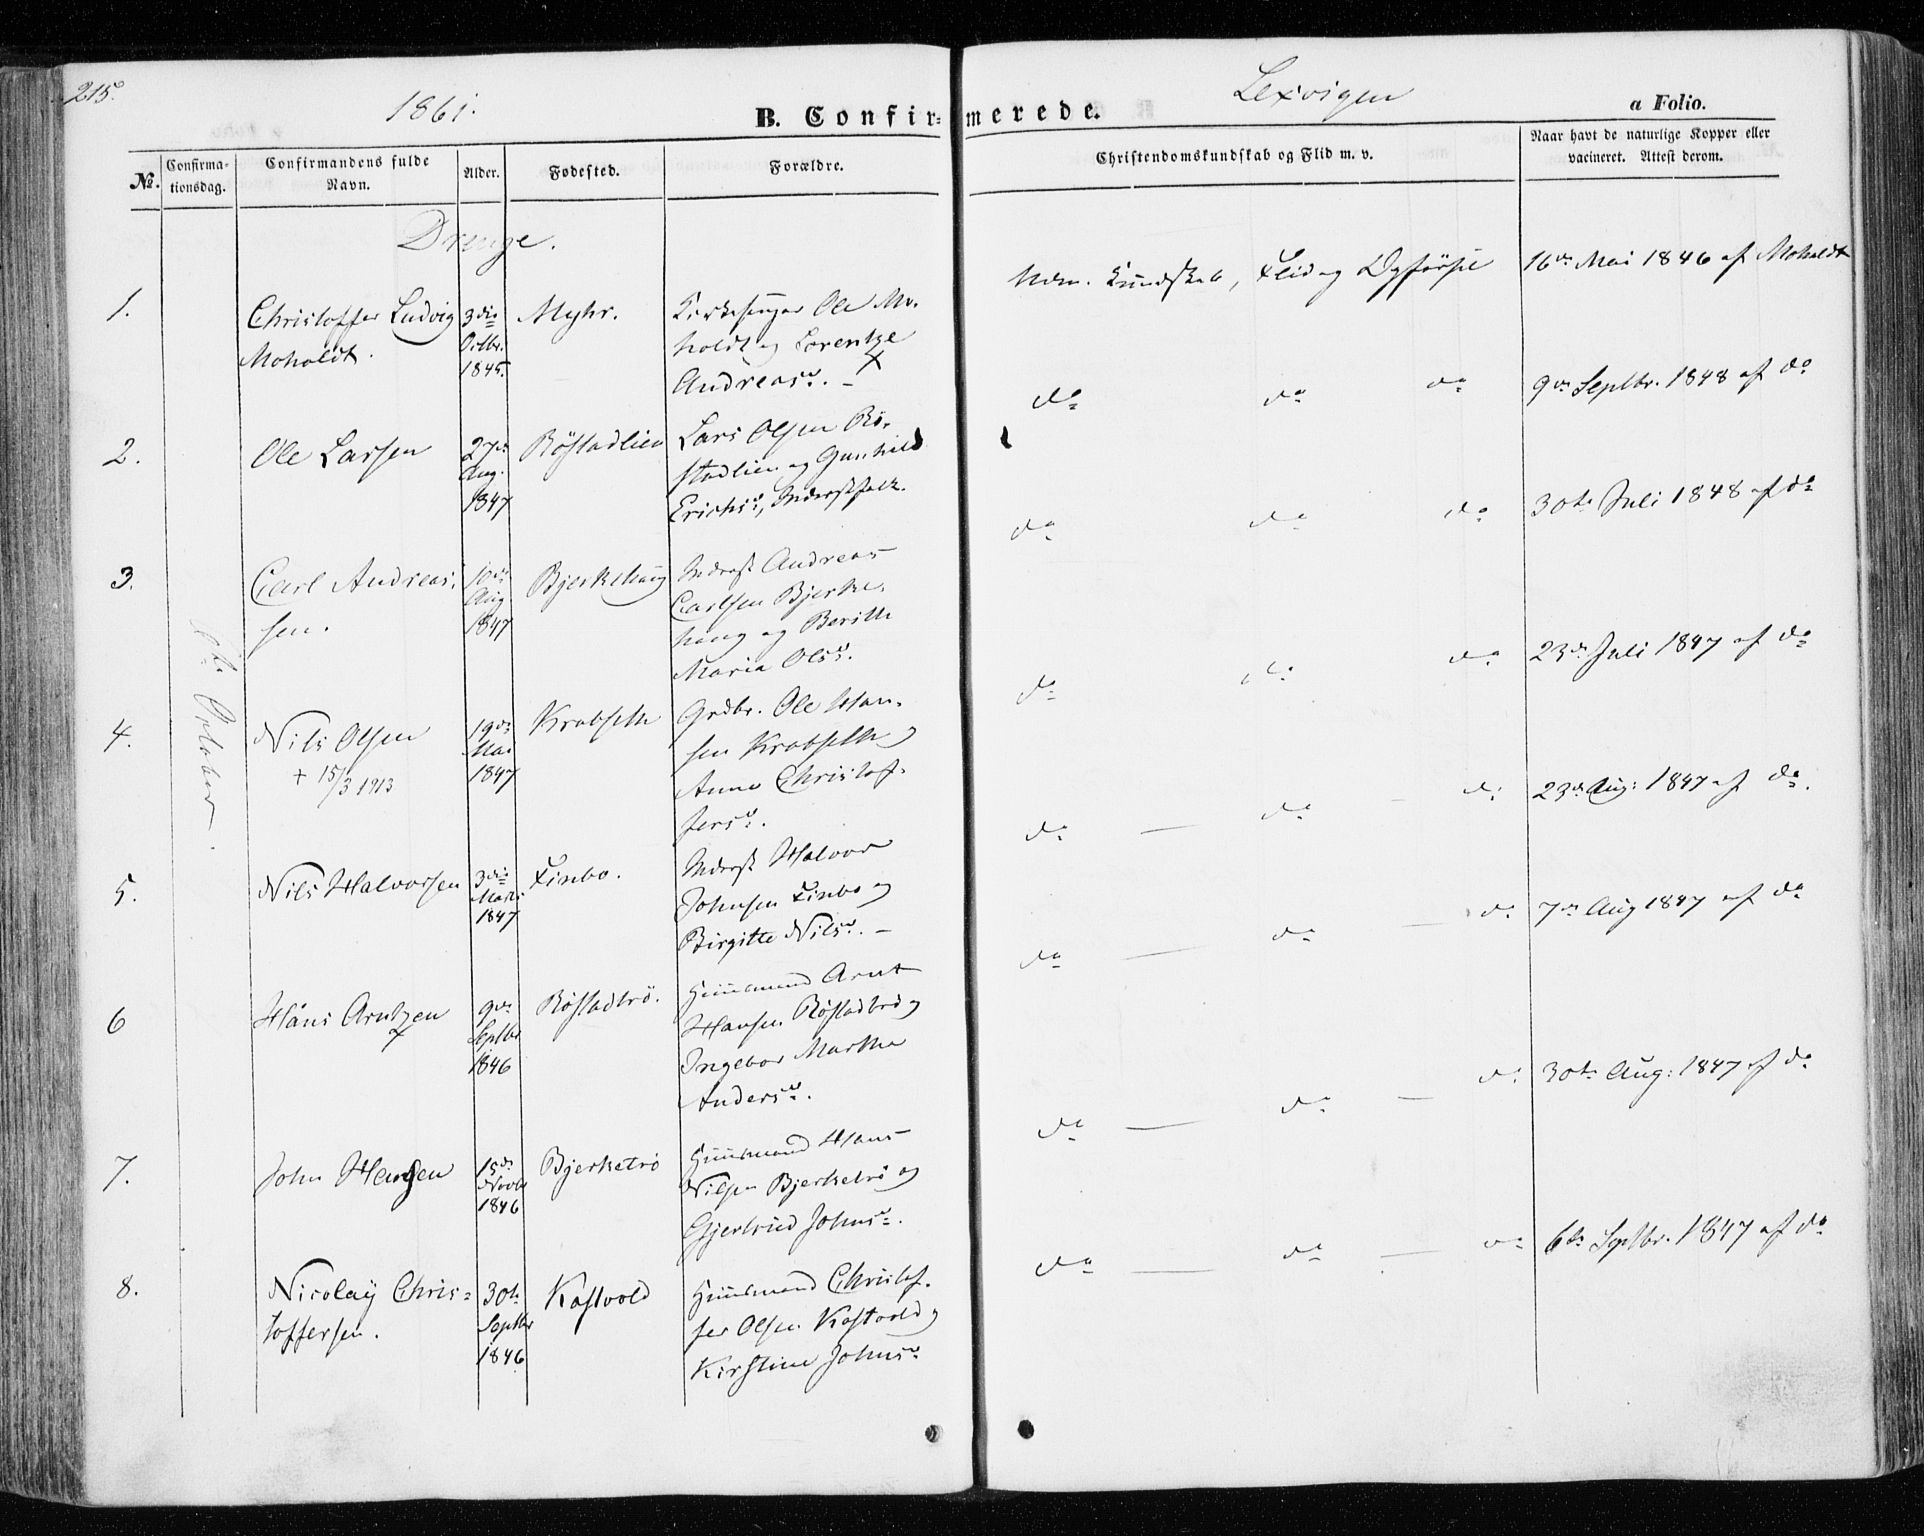 215.
1861.
Lexvigen
B. Confirmerede.
a Folio.
No.
Confirmationsdag.
Confirmandens fulde Navn.
Alder.
Fødested.
Forældre.
Christendomskundskab og Flid m. v.
Naar havt de naturlige Kopper eller vaccineret. Attest derom.
Drenge.
6te October.
1.
Christoffer Ludvig
Moholdt.
3die
Octbr.
1845.
Myhr.
Kirkesanger Ole Mo-
holdt og Lorentze
Andreasd. -
Udm. Kundskab, Flid og Opførsel
16de Mai 1846 af Moholdt
2.
Ole Larsen
27de
Aug.
1847
Røstadlien
Lars Olsen Rø-
stadlien og Gunhild
Erichsd., Inderstfolk.
do
do
do
9de Septbr. 1848 af do
3.
Carl Andreas-
sen.
10de
Aug
1847
Bjerkehaug
Inderst Andreas
Carlsen Bjerke-
haug og Berith
Maria Olsd.
do
do
do
30te Juli 1848 af do
4.
Nils Olsen
+ 15/3 1913
19de
Mai
1847
Krobseth
Grdbr. Ole Han-
sen Krobseth og
Anne Christof-
fersd.
do
do
do
23de Juli 1847 af do
5.
Nils Halvorsen
3die
Marts
1847
Finbo.
Inderst Halvor
Johnsen Finbo og
Birgitte Nilsd. -
do
do
do
23de Aug: 1847 af do.
6
Hans Arntzen
9de
Septbr
1846
Røstadtrø.
Huusmand Arnt
Hansen Røstadtrø og
Ingebor Martha
Andersd.
do
do
do
7de Aug 1847 af do
7.
John Hansen
15de
Novbr
1846
Bjerketrø
Huusmand Hans
Nilsen Bjerketrø og
Gjertrud Johnsd.
do
do
do
30te Aug: 1847 af do
8.
Nicolay Chris-
toffersen.
30te
Septbr
1846
Kastvold
Huusmand Christof-
fer Olsen Kastvold og
Kirstine Johnsd.
do
do
do
6te Septbr. 1847 af do